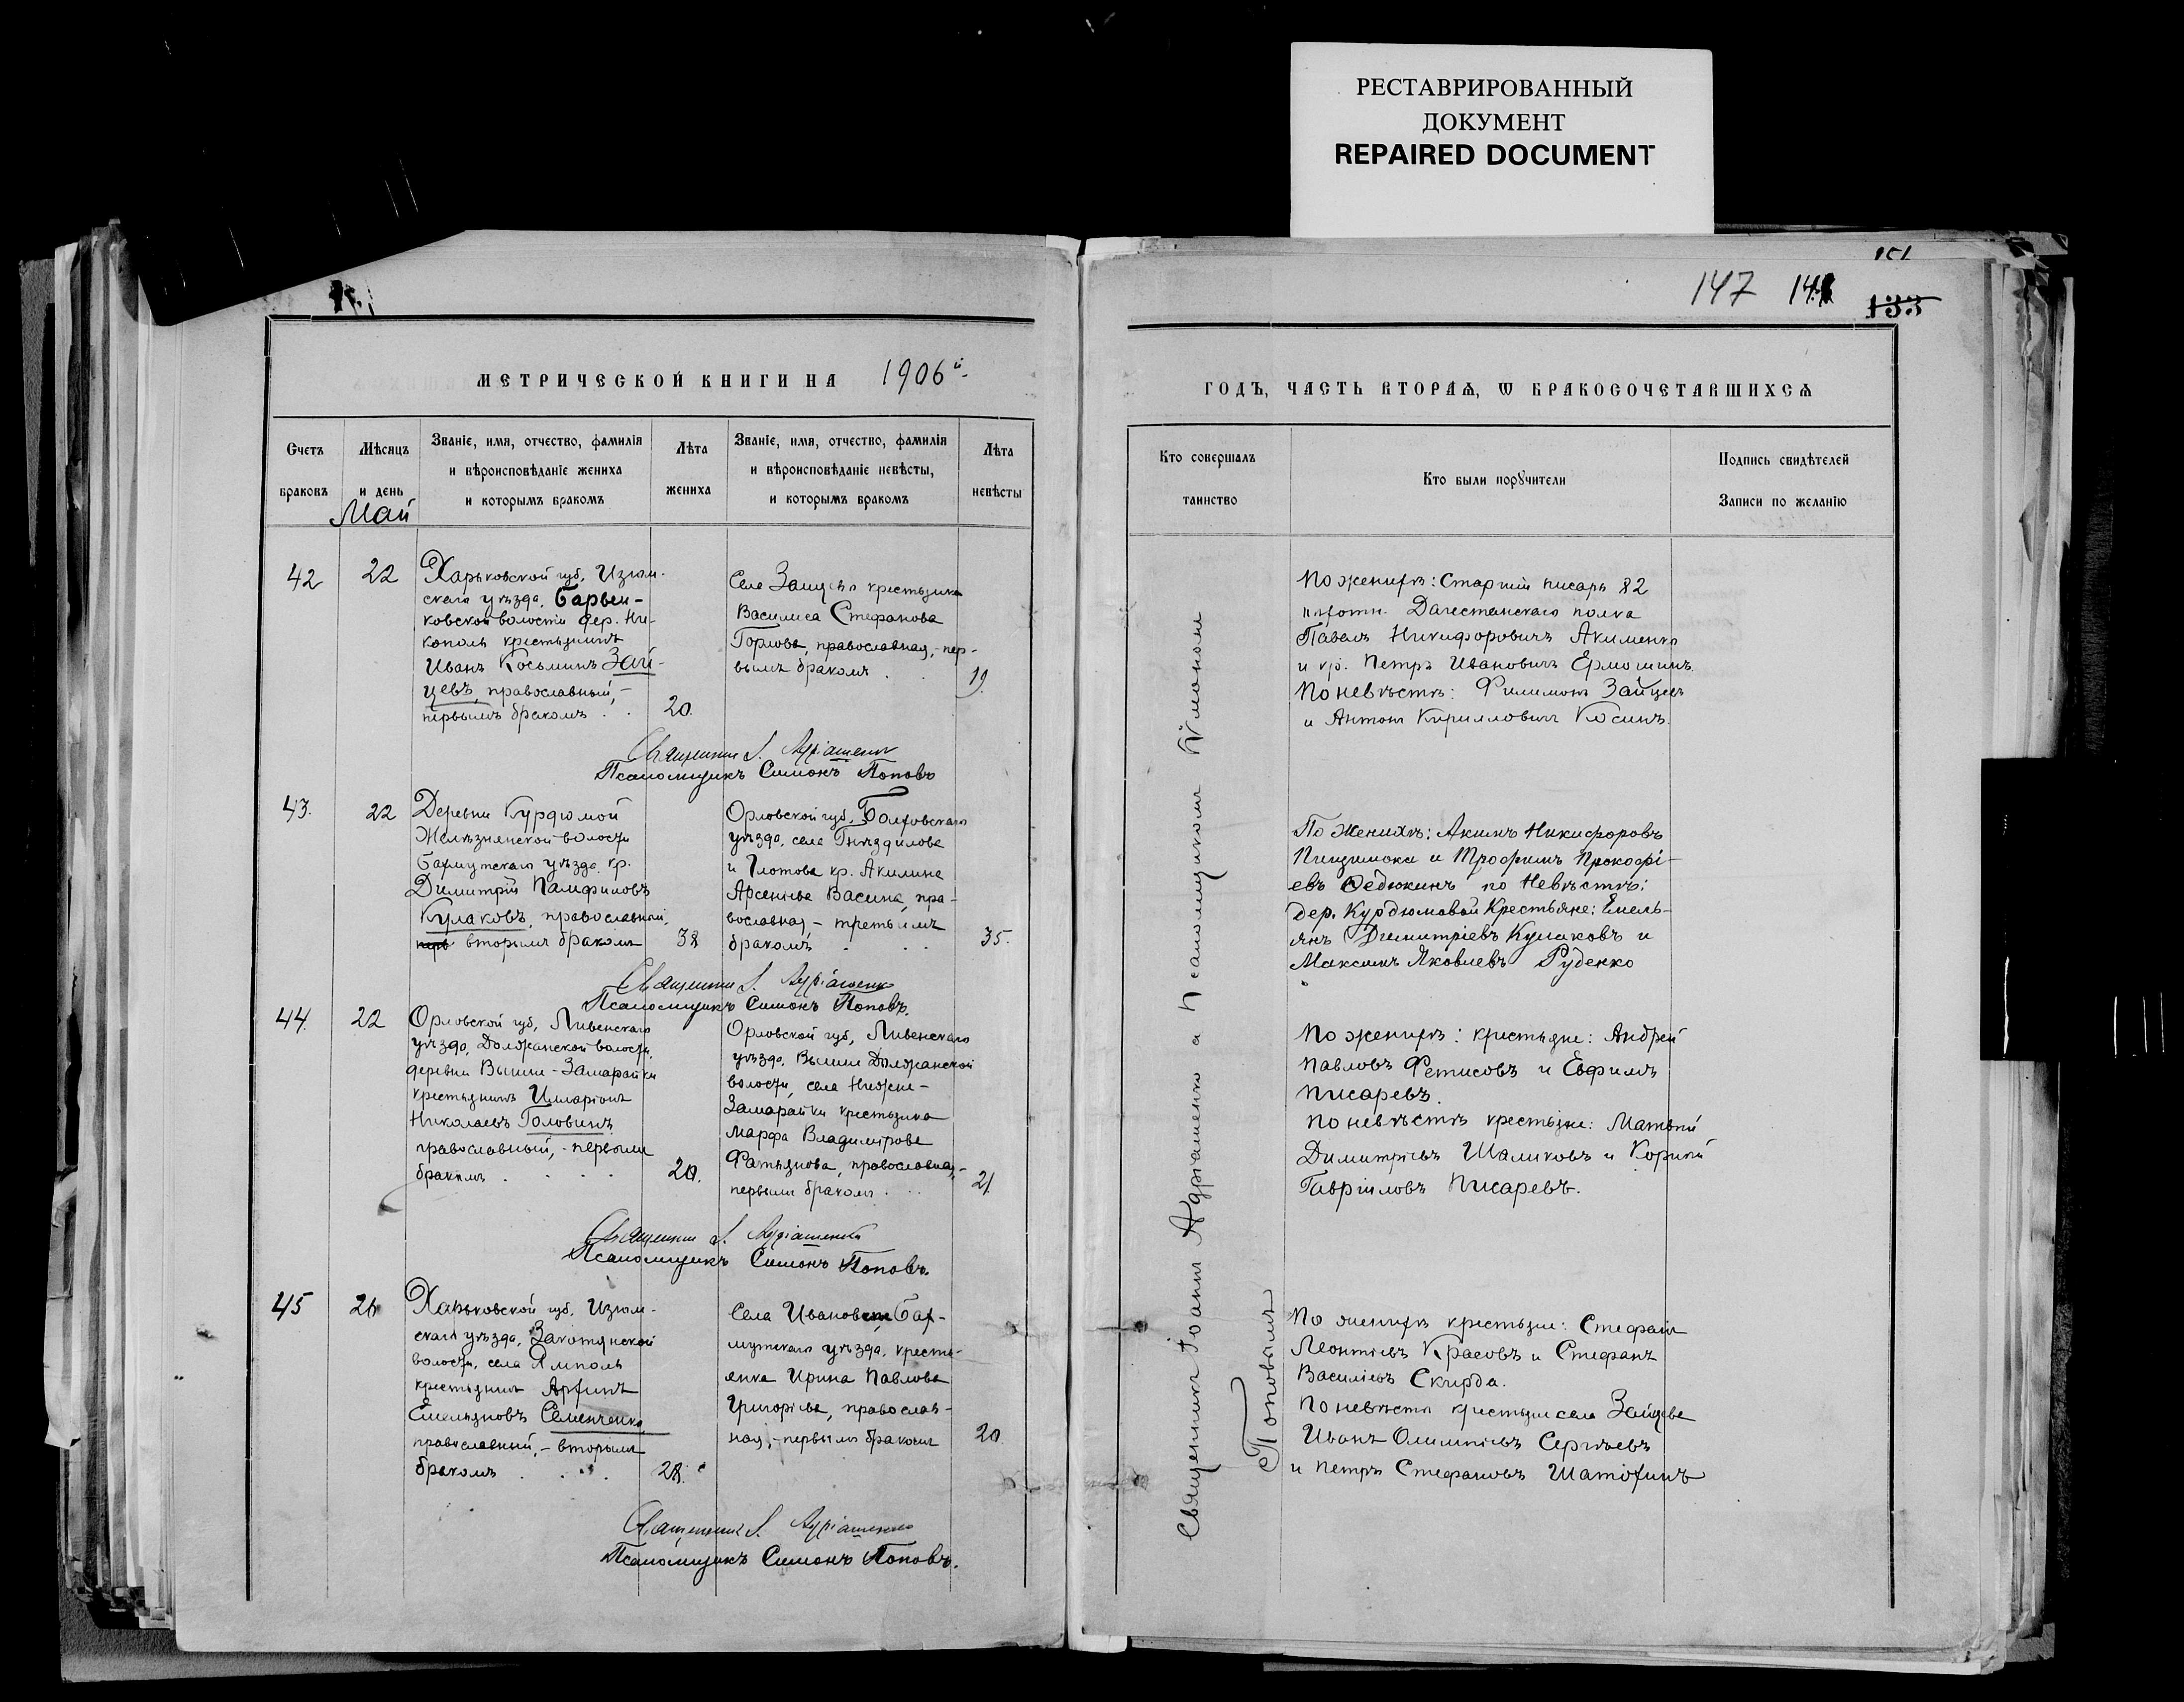 РЕСТАВРИРОВАННЫЙ
ДОКУМЕНТ
REPAIRED DOCUMENT
151
147 133
МЕТРИЧЕСКОЙ КНИГИ НА 1906й
Счетъ браковъ
Мѣсяцъ и день
Званіе, имя, отчество, фамилія
и вѣроисповѣданіе жениха
и которымъ бракомъ
Лѣта жениха
Званіе, имя, отчество, фамилія
и вѣроисповѣданіе невѣсты,
и которымъ бракомъ
Лѣта невѣсты
Май
42 22
Харьковской губ. Изюм-
скаго уѣзда, Барвен-
ковской волости дер. Ни-
кополь крестьянинъ
Иванъ Косьминъ Зай-
цевъ, православный,-
первымъ бракомъ . . 20.
Села Зайцева крестьянка
Василиса Стефанова
Горлова, православная,-пер-
вымъ бракомъ . . 19.
Священникъ І. Адріашенко
Псаломщикъ Симонъ Поповъ
43. 22
Деревни Курдюмой
Желѣзнянской волости
Бахмутскаго уѣзда кр.
Димитрій Памфиловъ
Кулаковъ, православный,
перв вторымъ бракомъ 38
Орловской губ. Болховскаго
уѣзда, села Гнѣздилова
и Глотова кр. Акилина
Арсеніева Васина, пра-
вославная,- третьимъ
бракомъ . . . 35.
Священникъ І. Адріашенко
Псаломщикъ Симонъ Поповъ.
44. 22
Орловской губ, Ливенскаго
уѣзда, Должанской волости,
деревни Вышне-Замарайки
крестьянинъ Илларіонъ
Николаевъ Головинъ,
православный,- первымъ
бракомъ . . . . 20.
Орловской губ, Ливенскаго
уѣзда, Вышне Должанской
волости, села Нижне-
Замарайки крестьянка
Марфа Владимірова
Фатьянова, православная,-
первымъ бракомъ . . . 21.
Священникъ І. Адріашенко
Псаломщикъ Симонъ Поповъ.
45 26
Харьковской губ. Изюм-
скаго уѣзда, Закотянской
волости, села Ямполь
крестьянинъ
Емельяновъ Семенченко
православный,- вторымъ
бракомъ . . . . 28.
Села Бах-
мутскаго уѣзда, кресть-
янка Ирина Павлова
Григорьева, православ-
ная,-первымъ бракомъ 20
Священникъ І. Адріашенко
Псаломщикъ Симонъ Поповъ.
ГОДЪ, ЧАСТЬ ВТОРАѦ, Ѡ БРАКОСОЧЕТАВШИХСѦ
Кто совершалъ таинство
Кто были порꙋчители
Подпись свидѣтелей
Записи по желанію
Священникъ Іоаннъ Адріашенко а псаломщикомъ Симономъ
Поповымъ
По женихѣ: Старшій писарь 82
пѣхотн. Дагестанскаго полка
Павелъ Никифоровичъ Акименко
и кр. Петръ Ивановичъ Ермошинъ.
По невѣстѣ: Филимонъ Зайцевъ
и Антонъ Кирилловичъ Косинъ.
По Женихѣ: Акимъ Никифоровъ
и Трофимъ Прокофі-
евъ Федюкинъ по Невѣстѣ:
дер. Курдюмовой Крестьяне: Емель-
янъ Димитріевъ Кулаковъ и
Максимъ Яковлевъ Руденко
По женихѣ: крестьяне: Андрей
Павловъ Фетисовъ и Евфимъ
Писаревъ.
по невѣстѣ крестьяне: Матвѣй
Димитріевъ Шаликовъ и Корній
Гавріиловъ Писаревъ.
По женихѣ крестьяне: Стефанъ
Леонтіевъ Красовъ и Стефанъ
Василіевъ Скирда.
По невѣстѣ крестьяне села Зайцева
Иванъ Олимпіевъ Сергѣевъ
и Петръ Стефановъ Шатохинъ